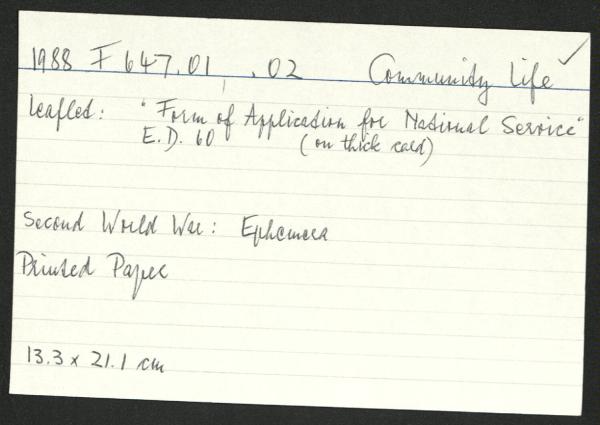 1988 F 647.01, .02 Community Life
Leaflet: "Form of Application for National Service"
E.D. 60 (on thick card)
Second World War: Ephemera
Printed Paper
13.3 x 21.1 cm